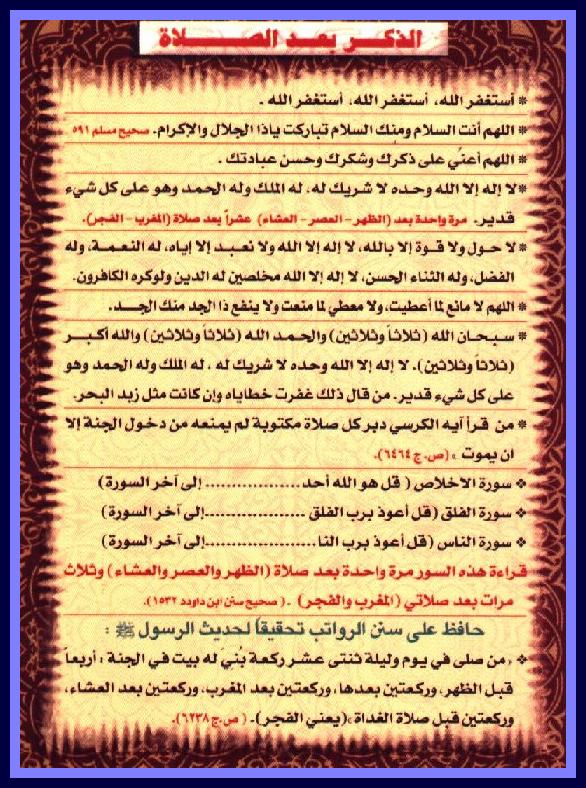 الذكر بعد الصلاة
* أستغفر الله، أستغفر الله، أستغفر الله .
* اللهم أنت السلام ومنك السلام تباركت ياذا الجلال والإكرام. صحيح مسلم ٥٩١
* اللهم أعنّي على ذكرك وشكرك وحسن عبادتك .
* لا إله إلا الله وحده لا شريك له، له الملك وله الحمد وهو على كل شيء
قدير. مرة واحدة بعد (الظهر - العصر - العشاء) عشراً بعد صلاة (المغرب - الفجر).
* لا حول ولا قوة إلا بالله، لا إله إلا الله ولا نعبد إلا إياه، له النعمة، وله
الفضل، وله الثناء الحسن، لا إله إلا الله مخلصين له الدين ولوكره الكافرون.
* اللهم لا مانع لما أعطيت، ولا معطي لما منعت ولا ينفع ذا الجد منك الجد.
* سبحان الله (ثلاثاً وثلاثين) والحمد الله (ثلاثاً وثلاثين) والله أكبر
(ثلاثاً وثلاثين). لا إله إلا الله وحده لا شريك له ، له الملك وله الحمد وهو
على كل شيء قدير. من قال ذلك غفرت خطاياه وإن كانت مثل زبد البحر.
* من قرأ آيه الكرسي دبر كل صلاة مكتوبة لم يمنعه من دخول الجنة إلا
ان يموت » (ص.ج ٦٤٦٤).
* سورة الاخلاص ( قل هو الله أحد..................إلى آخر السورة)
* سورة الفلق (قل أعوذ برب الفلق ..................إلى آخر السورة)
* سورة الناس (قل أعوذ برب النا....................إلى آخر السورة)
قراءة هذه السور مرة واحدة بعد صلاة (الظهر والعصر والعشاء) وثلاث
مرات بعد صلاتي (المغرب والفجر) . ( صحيح سنن ابن داودد ١٥٣٢).
حافظ على سنن الرواتب تحقيقاً لحديث الرسول ﷺ :
* « من صلى في يوم وليلة ثنتى عشر ركعة بُني له بيت في الجنة ، أربعاً
قبل الظهر، وركعتين بعدها، وركعتين بعد المغرب، وركعتين بعد العشاء،
وركعتين قبل صلاة الغداة »(يعني الفجر). ( ص.ج ٦٢٣٨).